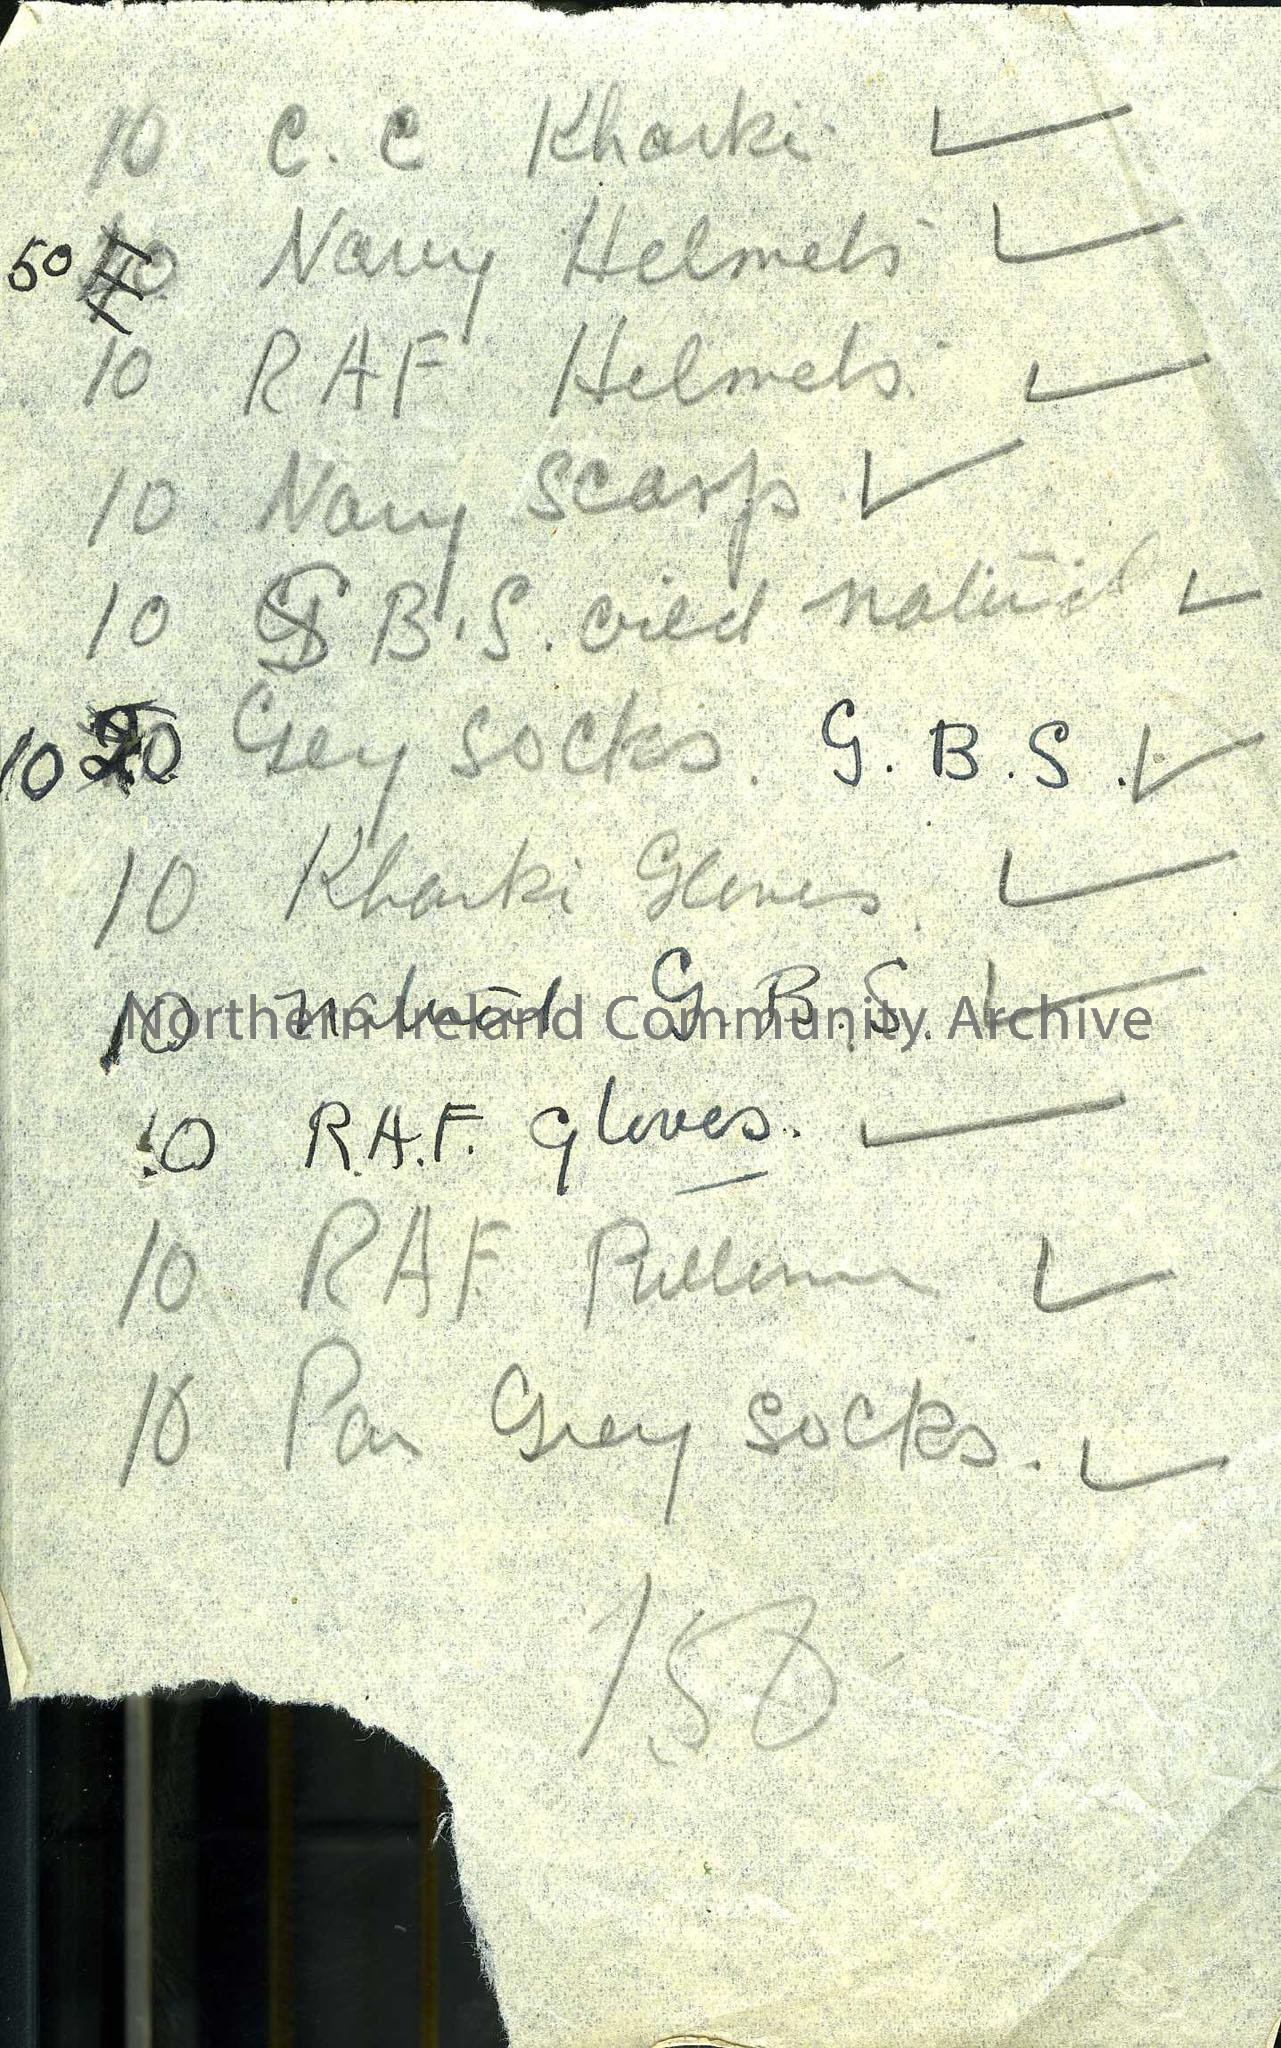 10 C. C Kharki ✓
50 Navy Helmets ✓
10 RAF Helmets ✓
10 Navy Scarfs ✓
10 B.S. oiled natural ✓
10 20 Grey Socks. G.B.S. ✓
10 Kharki Gloves ✓
10 natural G.B.S. ✓
10 R.A.F. gloves. ✓
10 RAF Pullover ✓
10 Pair Grey Socks. ✓
150
Northern Ireland Community Archive